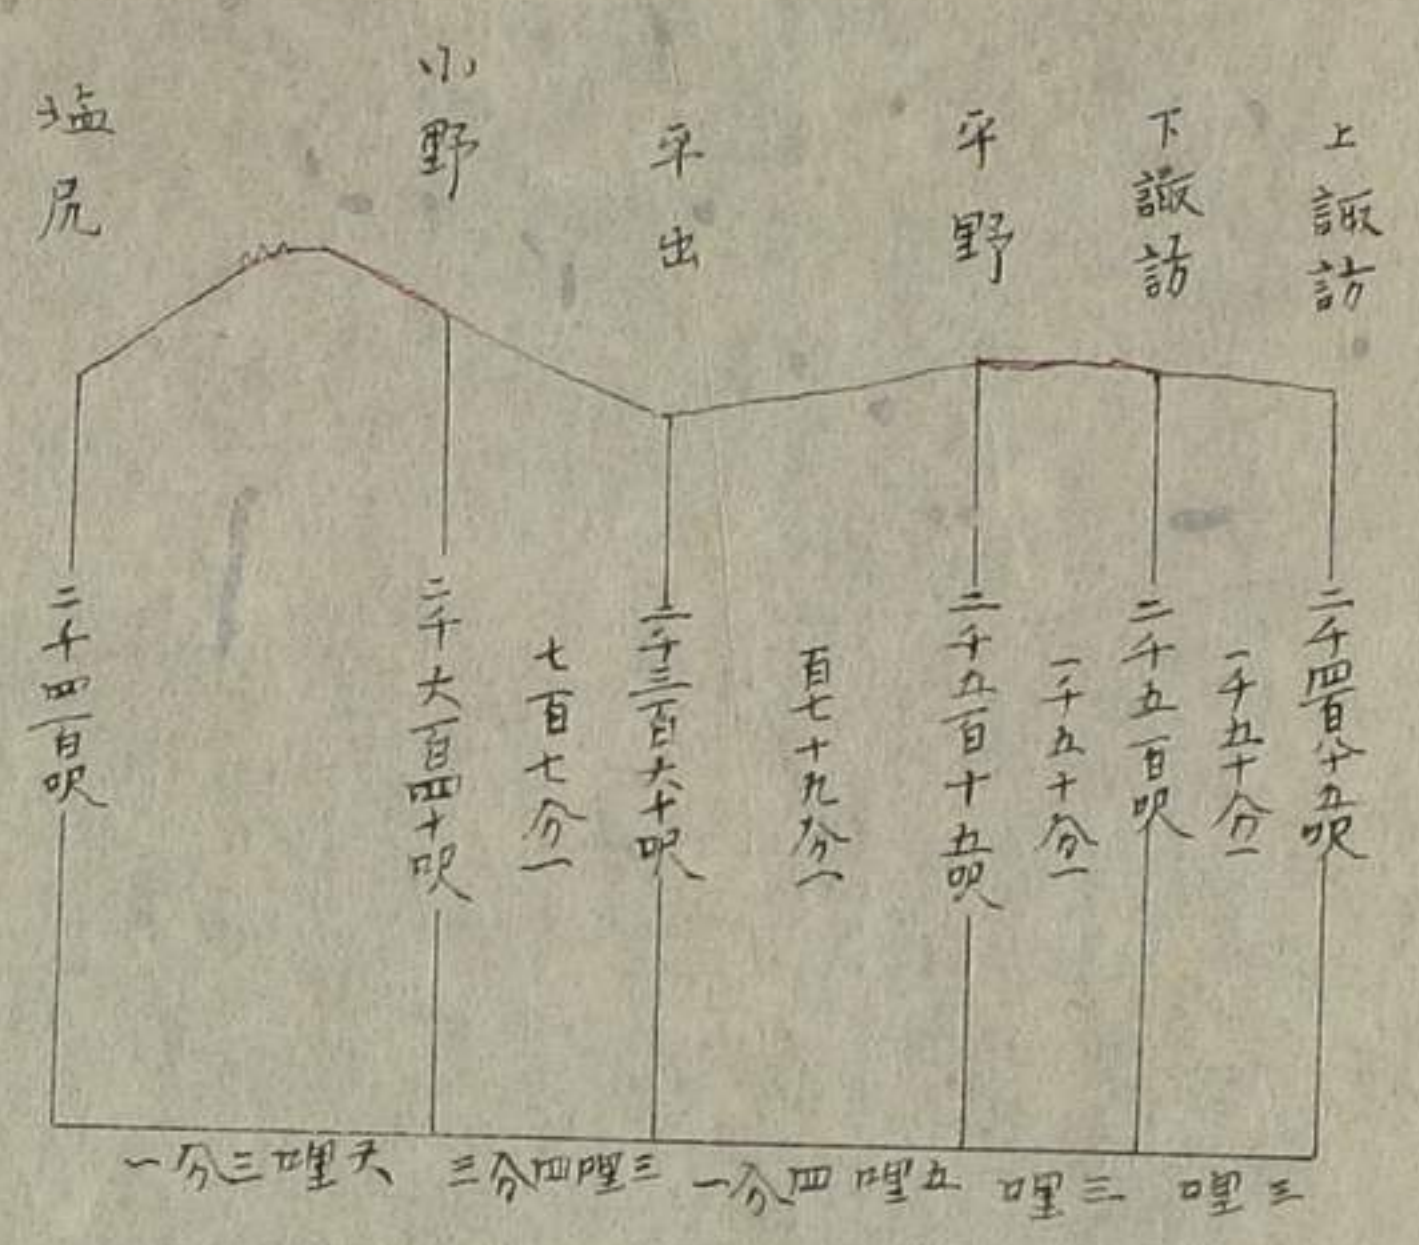 上諏訪
下諏訪
平野
平出
小野
塩尻
二千四百八十五呎
一千五十分一
二千五百呎
一千五十分一
二千五百十五呎
百七十九分一
二千三百六十呎
七百七分一
二千六百四十呎
二千四百呎
三哩
三哩
五哩四分一
三哩四分三
六哩三分一